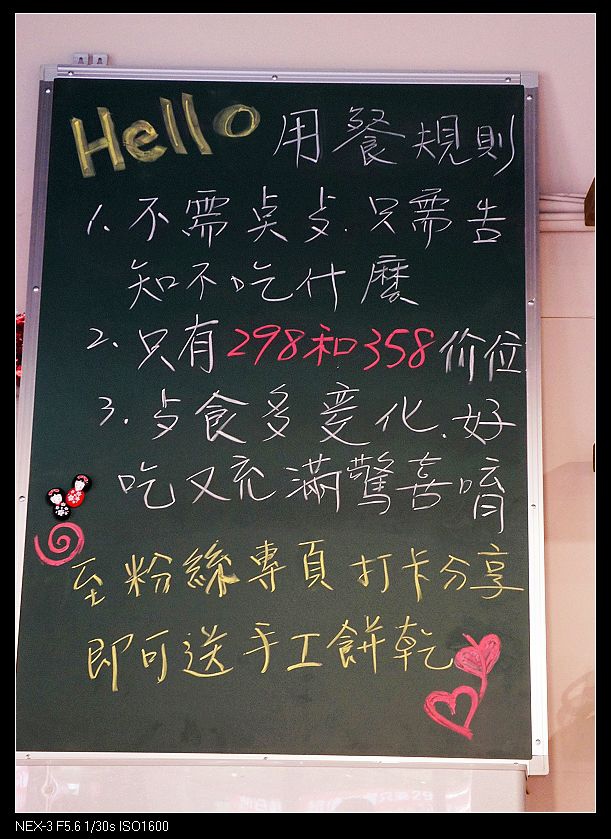 Hello 用餐規則
1. 不需點餐.只需告
知不吃什麼
2. 只有298和358价位
3. 餐食多变化.好
吃又充滿驚喜唷
至粉絲專頁打卡分享
即可送手工餅乾
NEX-3 F5.6 1/30s ISO1600